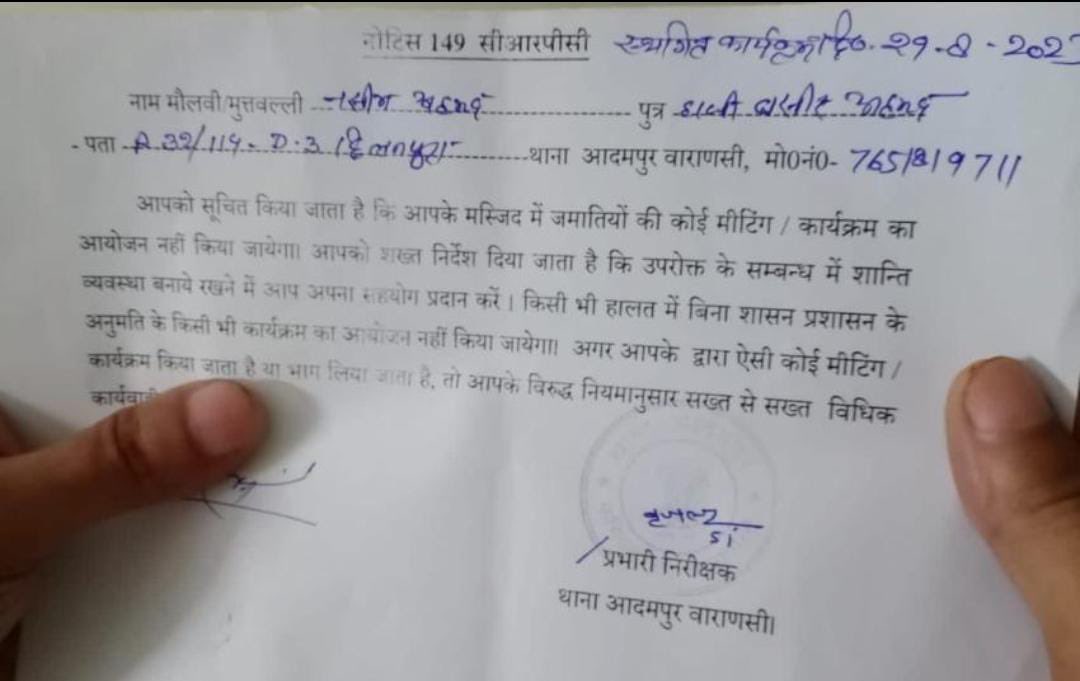 नोटिस 149 सीआरपीसी स्थगित कार्यक्रम दि0. 29-8-202
नाम मौलवी/मुत्तवल्ली नसीम अहमद पुत्र हाजी अहमद
पता A 32/114- D-3 थाना आदमपुर वाराणसी, मो0नं0-
आपको सूचित किया जाता है कि आपके मस्जिद में जमातियों की कोई मीटिंग / कार्यक्रम का
आयोजन नहीं किया जायेगा। आपको शख्त निर्देश दिया जाता है कि उपरोक्त के सम्बन्ध में शान्ति
व्यवस्था बनाये रखने में आप अपना सहयोग प्रदान करें। किसी भी हालत में बिना शासन प्रशासन के
अनुमति के किसी भी कार्यक्रम का आयोजन नहीं किया जायेगा। अगर आपके द्वारा ऐसी कोई मीटिंग /
कार्यक्रम किया जाता है या भाग लिया जाता है, तो आपके विरुद्ध नियमानुसार सख्त से सख्त विधिक
SI
प्रभारी निरीक्षक
थाना आदमपुर वाराणसी।